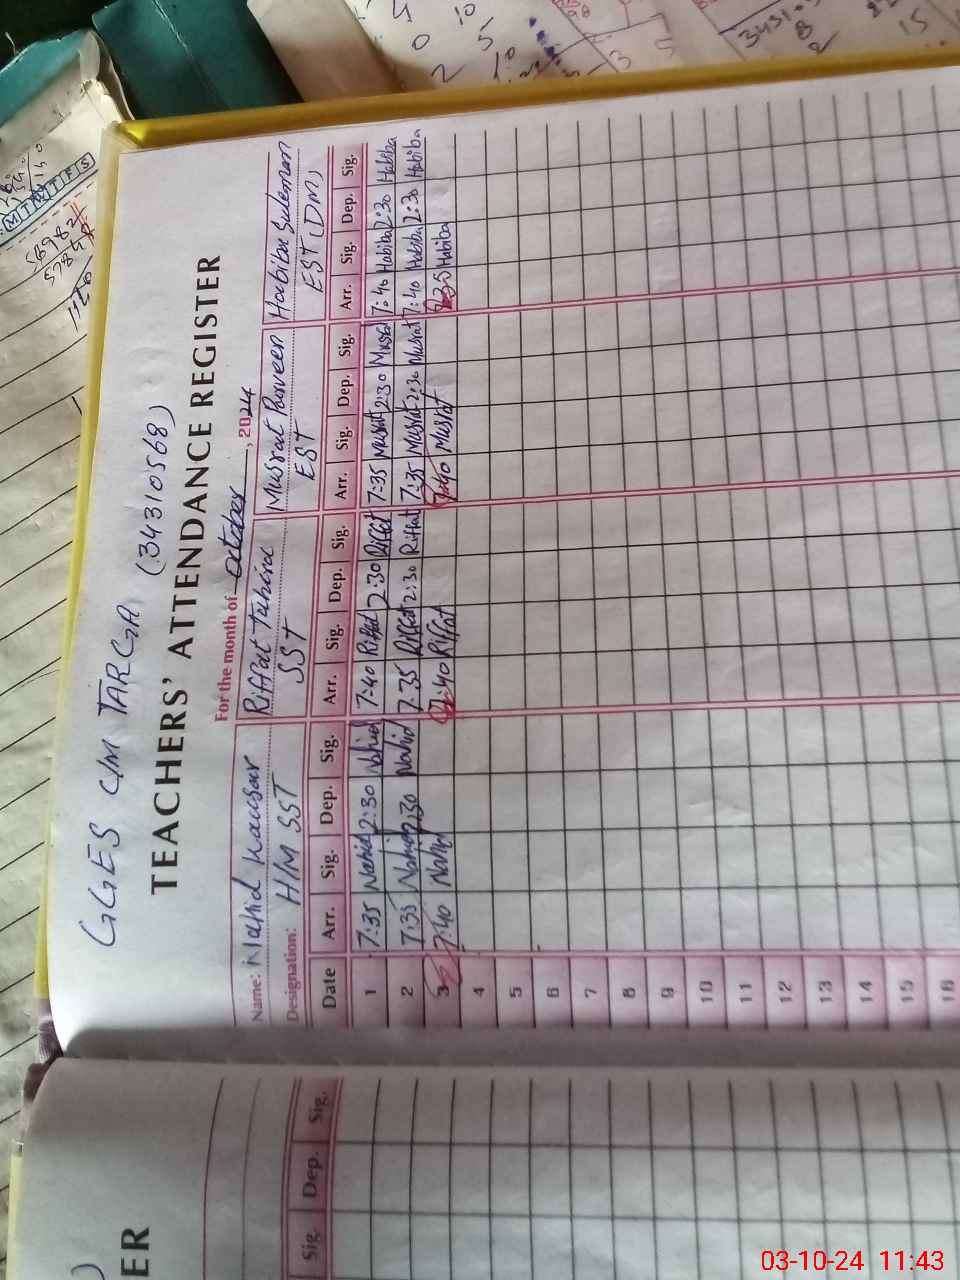 GGES C/M TARGA (34310568)
TEACHERS' ATTENDANCE REGISTER
For the month of October, 2024
Name: Nahid Kausar Riffat Tahira Musrat Parveen Habiba Suleman
Designation: H/M SST SST EST EST (DM)
Date Arr. Sig. Dep. Sig. Arr. Sig. Dep. Sig. Arr. Sig. Dep. Sig. Arr. Sig. Dep. Sig.
1 7:35 Nahid 2:30 Nahid 7:40 Riffat 2:30 Riffat 7:35 Musrat 2:30 Musrat 7:40 Habiba 2:30 Habiba
2 7:35 Nahid 2:30 Nahid 7:35 Riffat 2:30 Riffat 7:35 Musrat 2:30 Musrat 7:40 Habiba 2:30 Habiba
3 7:40 Nahid 7:40 Riffat 7:40 Musrat 7:35 Habiba
4
5
6
7
8
9
10
11
12
13
14
15
16
ER
Sig. Dep. Sig.
M T W T F S
03-10-24 11:43